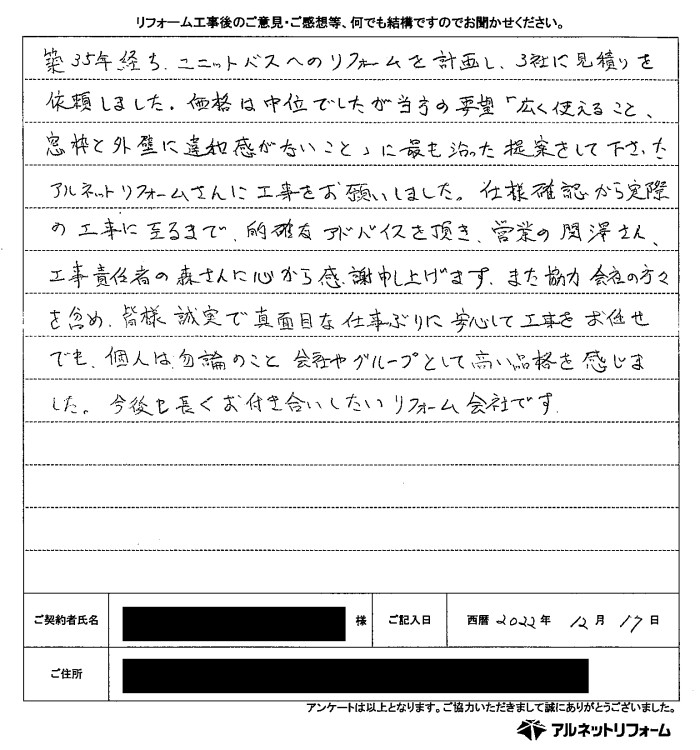 リフォーム工事後のご意見・ご感想等、何でも結構ですのでお聞かせください。
築35年経ち、ユニットバスへのリフォームを計画し、3社に見積りを
依頼しました。価格は中位でしたが当方の要望「広く使えること、
窓枠と外壁に違和感がないこと」に最も沿った提案をして下さった
アルネットリフォームさんに工事をお願いしました。仕様確認から実際
の工事に至るまで、的確なアドバイスを頂き、営業の関澤さん、
工事責任者の森さんに心から感謝申し上げます。また協力会社の方々
を含め、皆様誠実で真面目な仕事ぶりに安心して工事をお任せ
でき、個人は勿論のこと会社やグループとして高い品格を感じま
した。今後も長くお付き合いしたいリフォーム会社です。
ご契約者氏名 様 ご記入日 西暦 2022年 12月 17日
ご住所
アンケートは以上となります。ご協力いただきまして誠にありがとうございました。
アルネットリフォーム